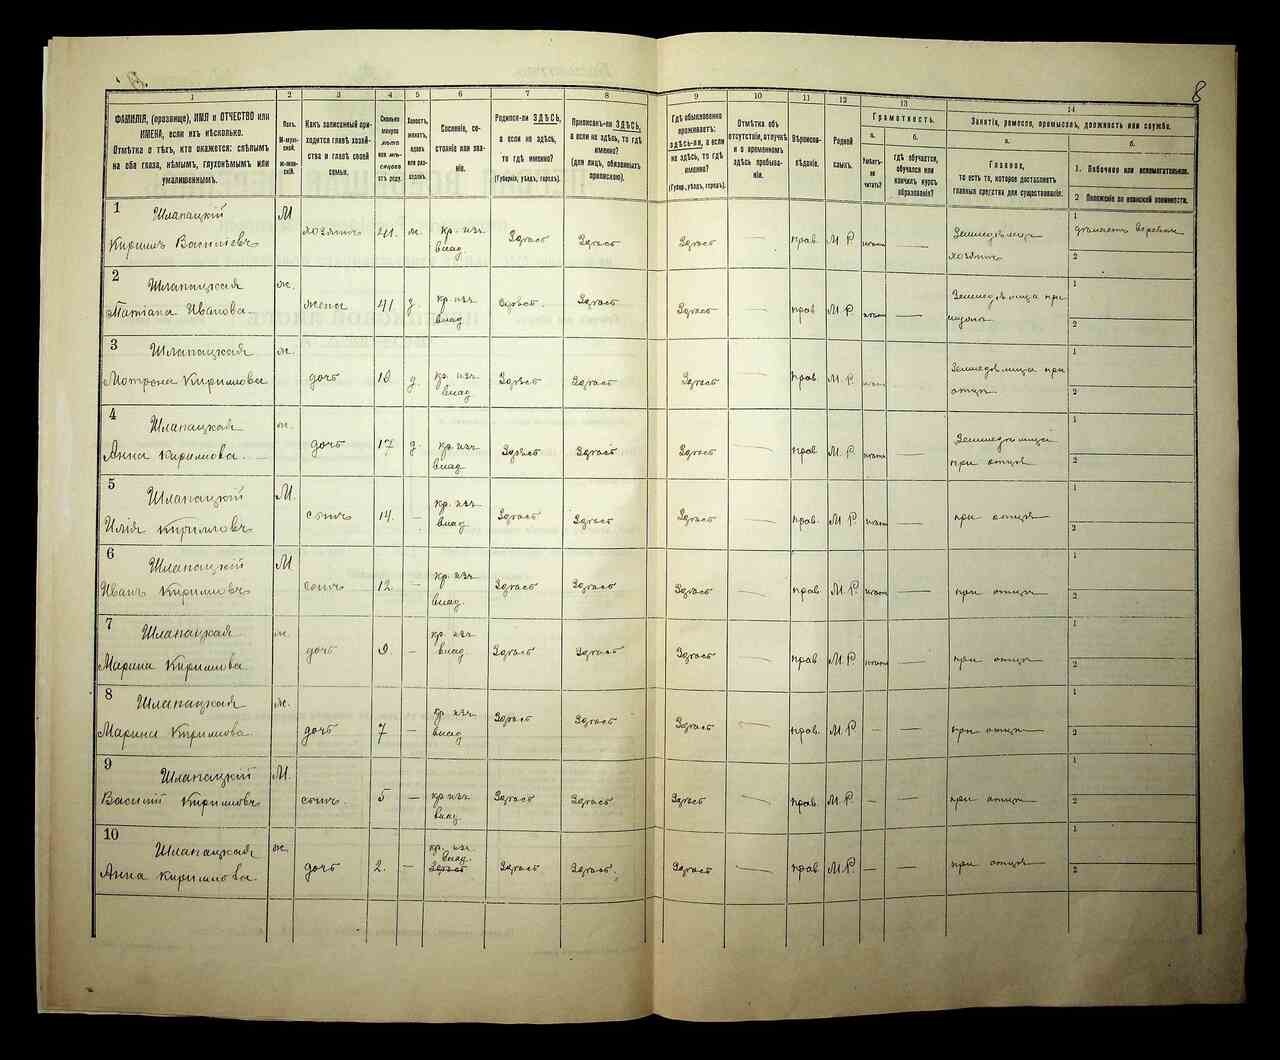 8
1 2 3 4 5 6 7 8 9 10 11 12 13 14
ФАМИЛІЯ, (прозвище), ИМЯ и ОТЧЕСТВО или
ИМЕНА, если ихъ нѣсколько.
Отмѣтка о тѣхъ, кто окажется: слѣпымъ
на оба глаза, нѣмымъ, глухонѣмымъ или
умалишеннымъ.
Полъ.
М-мужской.
Ж-женскій.
Какъ записанный приходится главѣ хозяйства и главѣ своей семьи.
Сколько минуло лѣтъ или мѣсяцевъ отъ роду.
Холостъ, женатъ, вдовъ или разведенъ.
Сословіе, состояніе или званіе.
Родился-ли ЗДѢСЬ,
а если не здѣсь,
то гдѣ именно?
(Губернія, уѣздъ, городъ).
Приписанъ-ли ЗДѢСЬ,
а если не здѣсь, то гдѣ
именно?
(для лицъ, обязанныхъ
припискою).
Гдѣ обыкновенно
проживаетъ:
здѣсь-ли, а если
не здѣсь, то гдѣ
именно?
(Губер., уѣздъ, городъ).
Отмѣтка объ
отсутствіи, отлучкѣ
и о временномъ
здѣсь пребываніи.
Вѣроисповѣданіе.
Родной
языкъ.
Грамотность.
а.
Умѣетъ-ли
читать?
б.
гдѣ обучается,
обучался или
кончилъ курсъ
образованія?
Занятіе, ремесло, промыселъ, должность или служба.
а.
Главное,
то есть то, которое доставляетъ
главныя средства для существованія.
б.
1. Побочное или вспомогательное.
2 Положеніе по воинской повинности.
1 Шлапацкій М 1
Кирилъ Василіевъ хозяинъ 41. ж. кр. изъ влад. Здѣсь Здѣсь Здѣсь — прав М. Р — хозяинъ 2
2 Шлапацкая ж. 1
Татіана Иванова жена 41 з. кр. изъ влад Здѣсь Здѣсь Здѣсь — прав М. Р — при 2
3 Шлапацкая ж. 1
Мотрона Кирилова дочь д. кр. изъ влад Здѣсь Здѣсь Здѣсь — прав. М. Р при отцѣ 2
4 Шлапацкая ж. 1
Анна Кирилова. дочь 17 д. кр. изъ влад Здѣсь Здѣсь Здѣсь — прав М. Р — при отцѣ 2
5 Шлапацкій М. 1
Илія Кириловъ сынъ 14. — кр. изъ влад Здѣсь Здѣсь Здѣсь — прав. М. Р при отцѣ 2
6 Шлапацкій М. 1
Иванъ Кириловъ сынъ 12 — кр. изъ влад. Здѣсь Здѣсь Здѣсь — прав М. Р. — при отцѣ 2
7 Шлапацкая ж. 1
Марина Кирилова дочь 9. — кр. изъ влад Здѣсь Здѣсь Здѣсь — прав М. Р — при отцѣ 2
8 Шлапацкая ж. 1
Марина Кирилова. дочь 7 — кр. изъ влад Здѣсь Здѣсь Здѣсь — прав. М. Р — — при отцѣ 2
9 Шлапацкій М. 1
Василій Кириловъ сынъ. 5 — кр изъ влад. Здѣсь Здѣсь Здѣсь — прав М. Р. — — при отцѣ 2
10 Шлапацкая ж. 1
Анна Кирилова. дочь 2. — кр. изъ влад. Здѣсь Здѣсь Здѣсь. Здѣсь — прав М. Р. — — при отцѣ 2